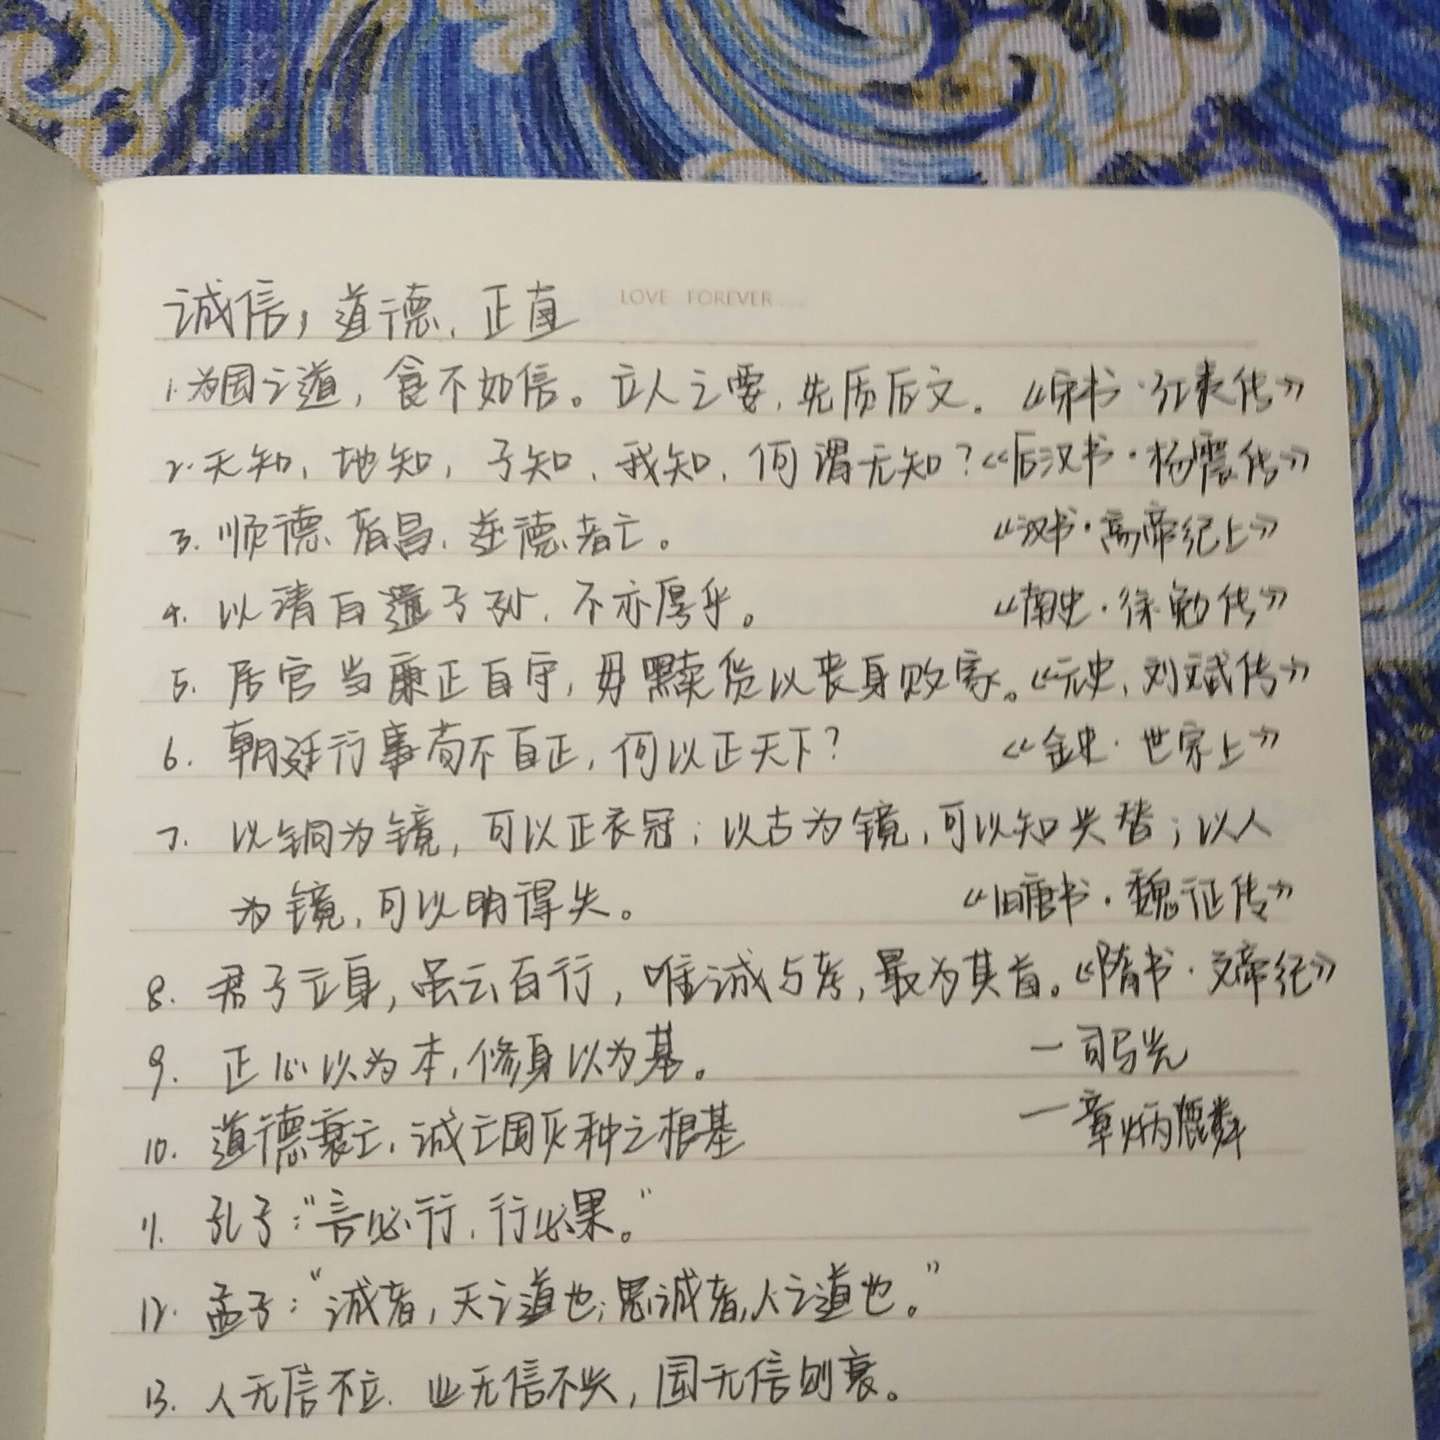 诚信,道德、正直
LOVE FOREVER...
1.为国之道,食不如信。立人之要,先质后文。《宋书·江夷传》
2.天知、地知,子知、我知、何谓无知?《后汉书·杨震传》
3.顺德者昌、逆德者亡。《汉书·高帝纪上》
4.以清白遗子孙、不亦厚乎。《南史·徐勉传》
5.居官当廉正自守,毋黩货以丧身败家。《元史、刘斌传》
6.朝廷行事苟不自正,何以正天下?《金史·世宗上》
7.以铜为镜,可以正衣冠;以古为镜,可以知兴替;以人
为镜,可以明得失。《旧唐书·魏征传》
8.君子立身,虽云百行,唯诚与孝,最为其首。《隋书·文帝纪》
9.正心以为本,修身以为基。—司马光
10.道德衰亡,诚亡国灭种之根基—章炳麟
11.孔子:“言必行,行必果。”
12.孟子:“诚者,天之道也;思诚者,人之道也。”
13.人无信不立、业无信不兴,国无信则衰。